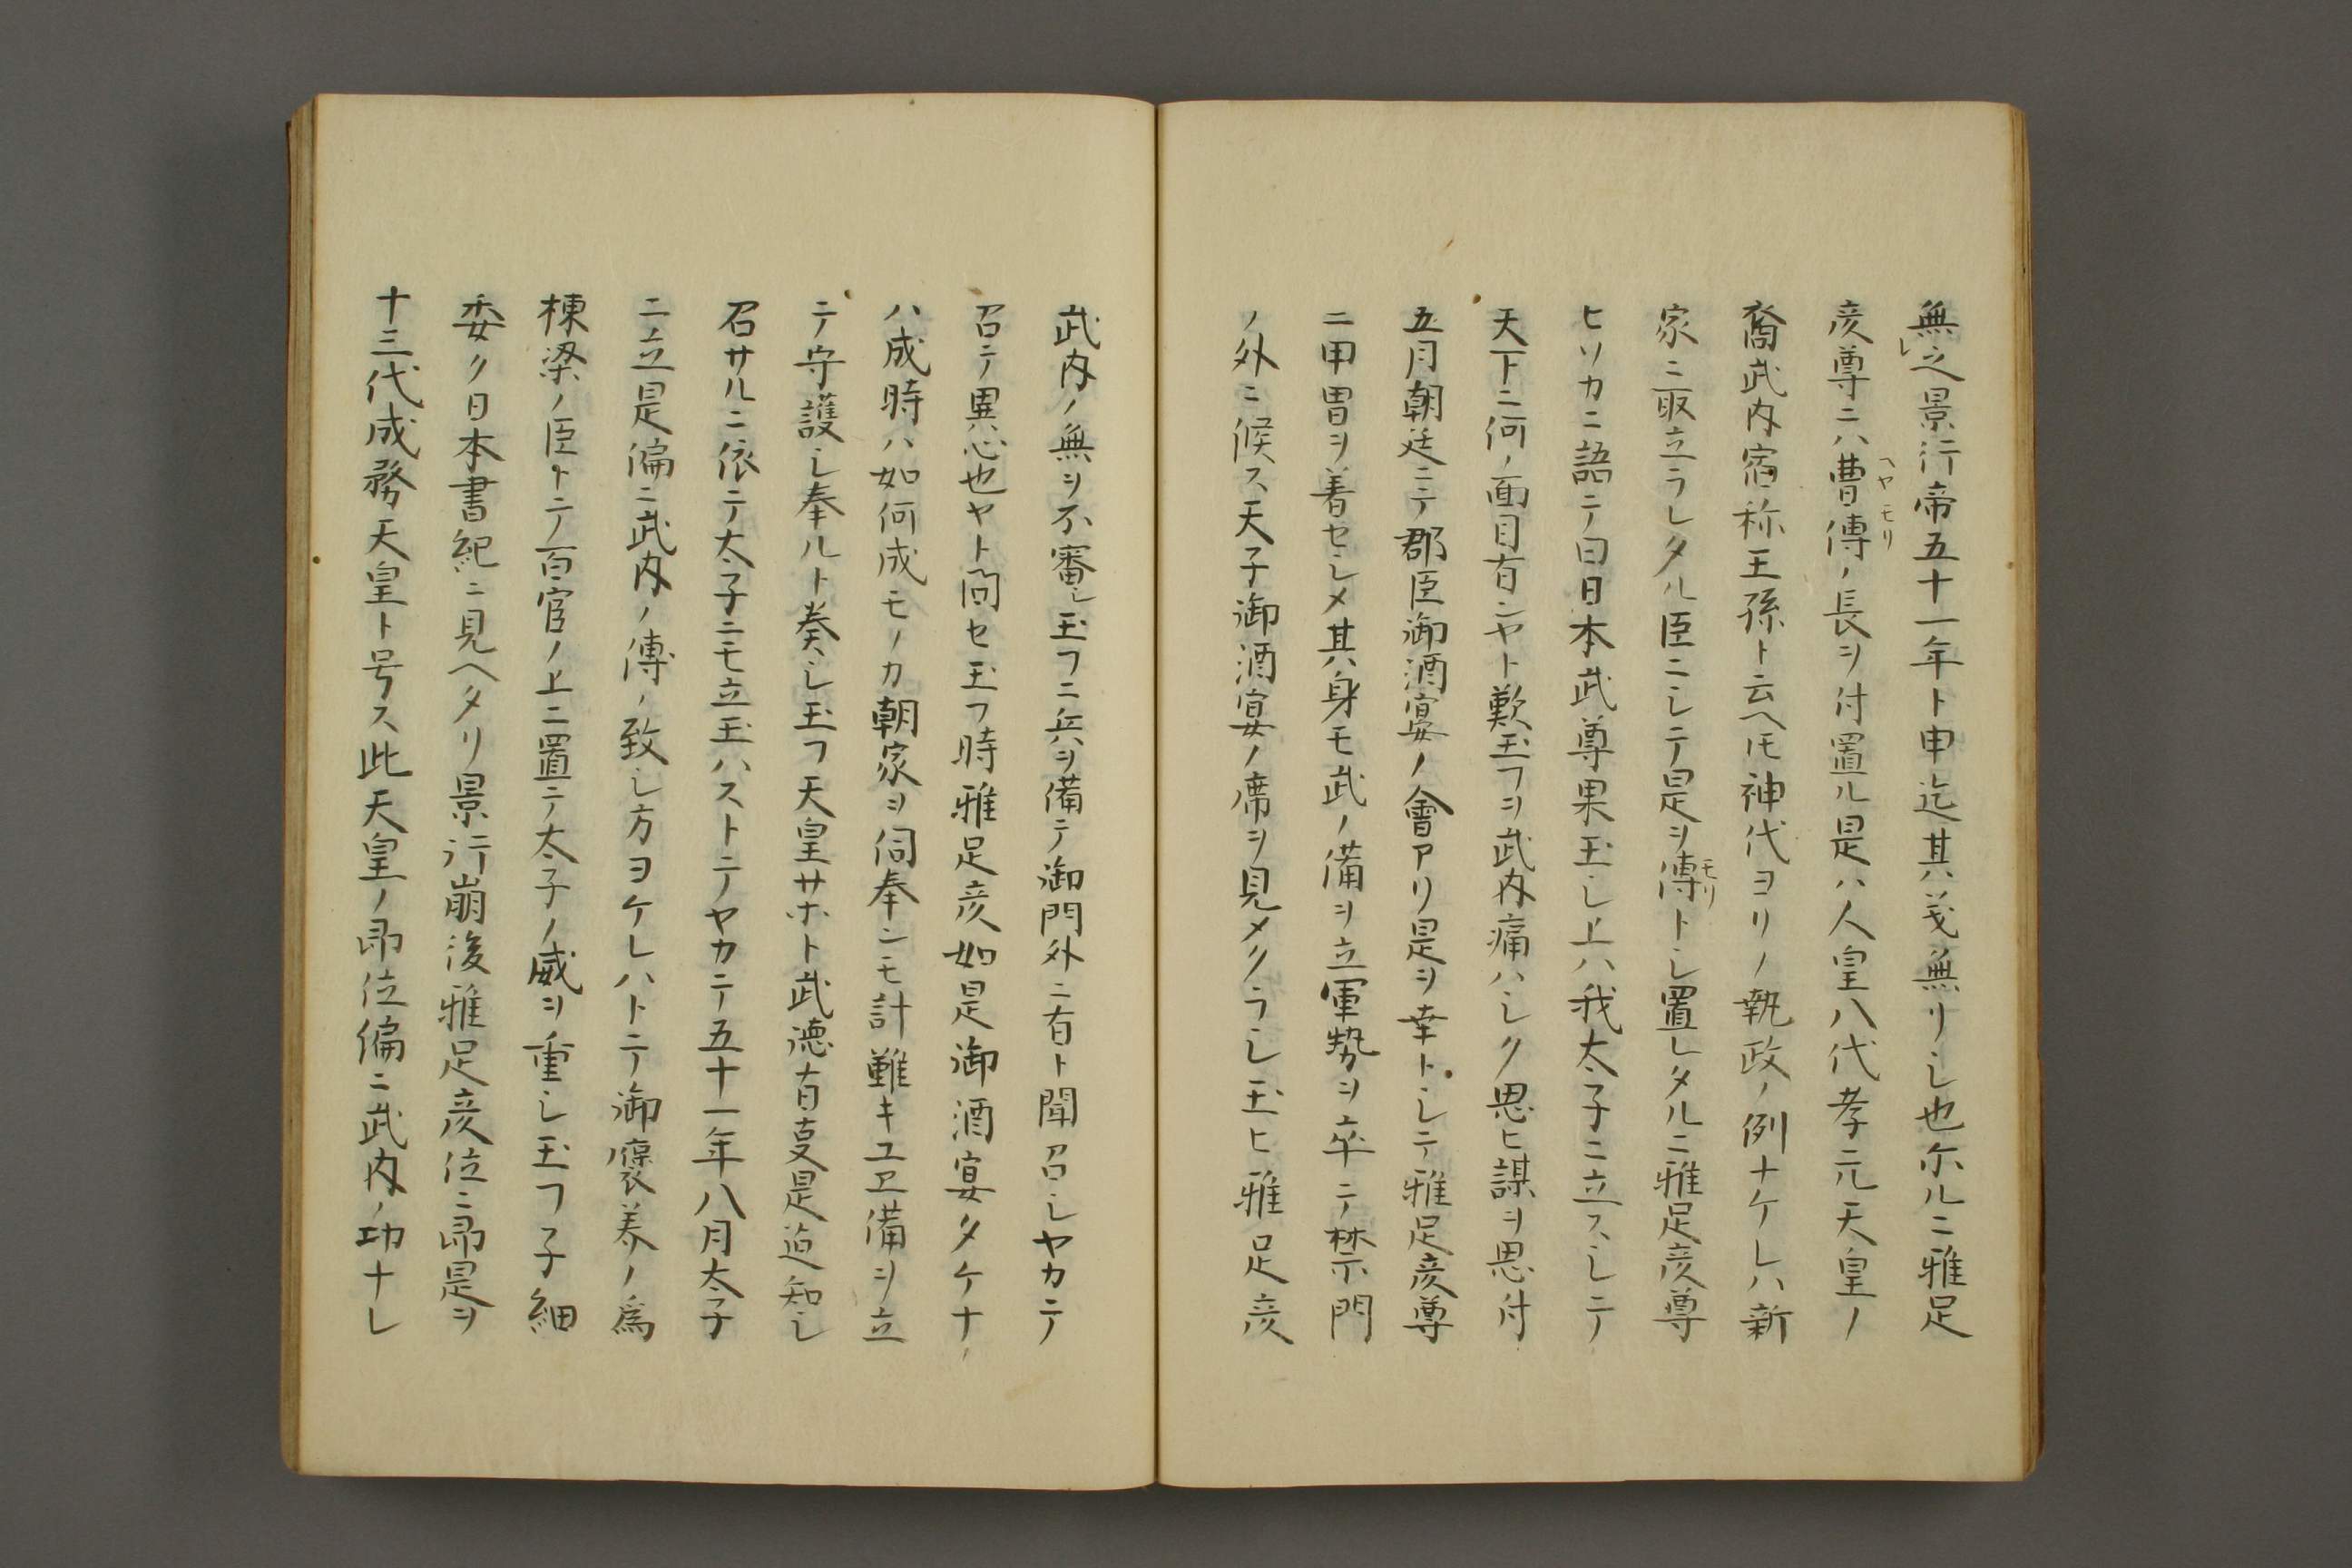 無㆑之景行帝五十一年ト申迄其義無リシ也尓ルニ雅足
彦尊ニハ曹傳ノ長ヲ付置ル是ハ人皇八代孝元天皇ノ
ヘヤモリ
裔武内宿祢王孫ト云ヘ𪜈神代ヨリノ執政ノ例ナケレハ新
家ニ取立ラレタル臣ニシテ是ヲ傳トシ置レタルニ雅足彦尊
モリ
ヒソカニ語テ曰日本武尊果玉シ上ハ我太子ニ立スシテ
天下ニ何ノ面目有ンヤト歎玉フヲ武内痛ハシク思ヒ謀ヲ思付
五月朝廷ニテ郡臣御酒宴ノ會アリ是ヲ幸トシテ雅足彦尊
ニ甲冑ヲ着セシメ其身モ武ノ備ヲ立軍勢ヲ卒テ禁門
ノ外ニ候ス天子御酒宴ノ席ヲ見メクラシ玉ヒ雅足彦
武内ノ無ヲ不審シ玉フニ兵ヲ備テ御門外ニ有ト聞召シヤカテ
召テ異心也ヤト問セ玉フ時雅足彦如是御酒宴タケナ
ハ成時ハ如何成モノカ朝家ヲ伺奉ンモ計難キユヱ備ヲ立
テ守護シ奉ルト奏シ玉フ天皇サホト武徳有叓是迠知シ
召サルニ依テ太子ニモ立玉ハストテヤカテ五十一年八月太子
ニ立是偏ニ武内ノ傳ノ致シ方ヨケレハトテ御褒美ノ為
棟梁ノ臣トテ百官ノ上ニ置テ太子ノ威ヲ重シ玉フ子細
委ク日本書紀ニ見ヘタリ景行崩後雅足彦位ニ即是ヲ
十三代成務天皇ト号ス此天皇ノ即位偏ニ武内ノ功ナレ